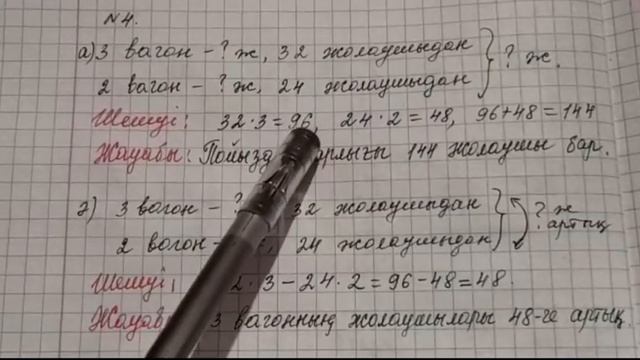 №4.
а) 3 вагон – ? ж, 32 жолаушыдан } ? ж.
2 вагон – ? ж, 24 жолаушыдан
Шешуі: 32·3=96, 24·2=48, 96+48=144
Жауабы: Пойызд арлығы 144 жолаушы бар.
ә) 3 вагон – ? 32 жолаушыдан } ? ж артық
2 вагон – 24 жолаушыдан
Шешуі 2·3–24·2=96–48=48.
Жауаб 3 вагонның жолаушылары 48-ге артық.